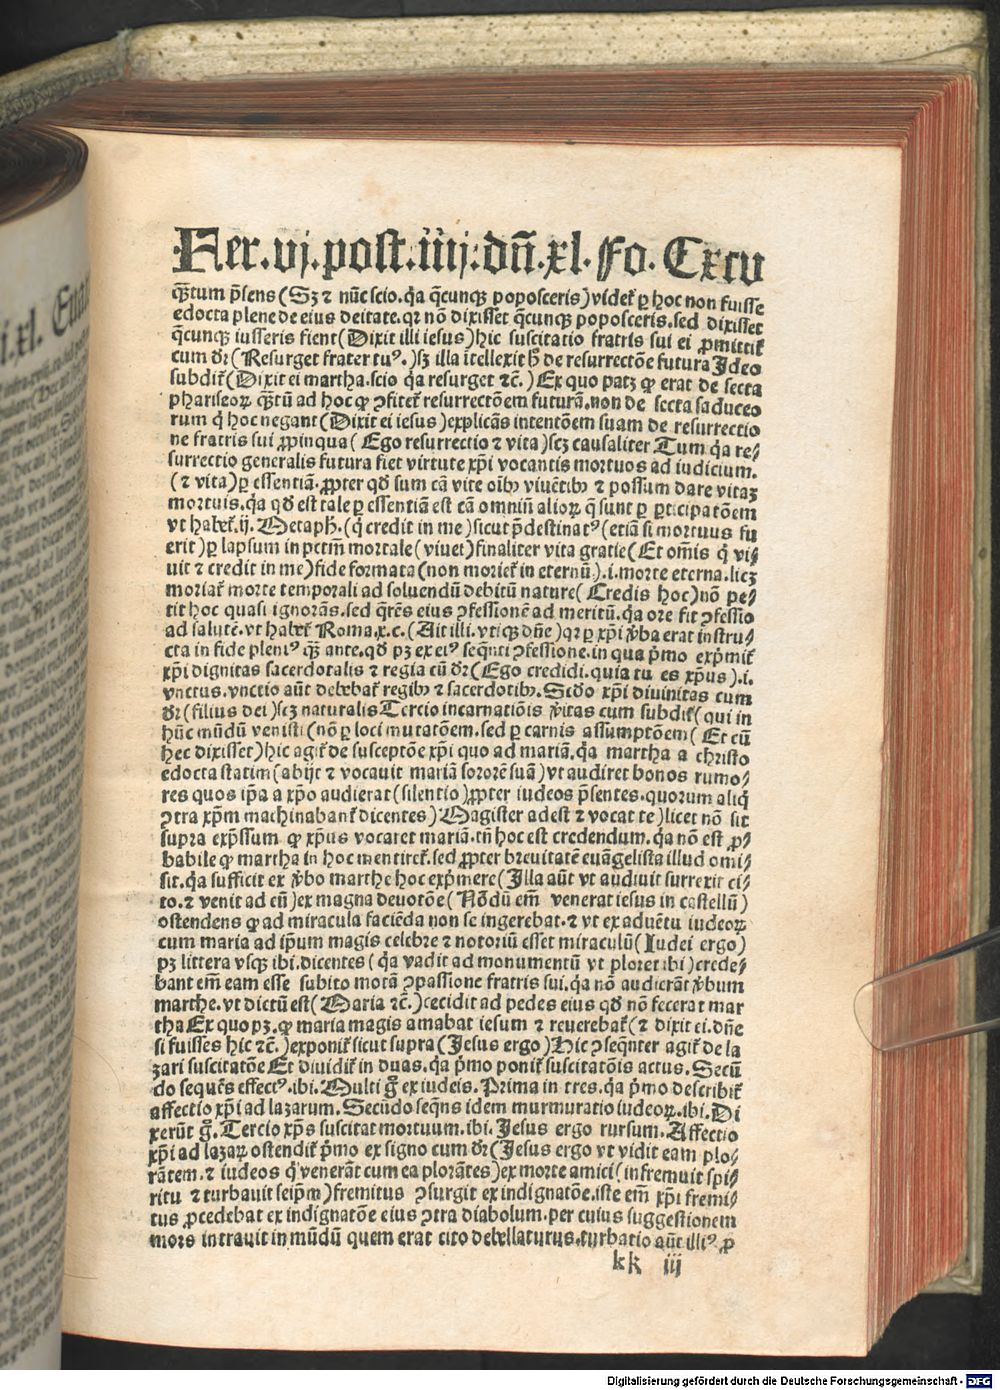 Fer.vj.post.iiij:dñ.xl. Fo. Cxcv
q̃tum p̃sens (Sꝫ ⁊ nũc scio.q̃a q̃cunqꝫ poposceris) videt᷑ ꝑ hoc non fuisse
edocta plene de eius deitate.qꝛ nõ dixisset q̃cunqꝫ poposceris.sed dixisset
q̃cunqꝫ iusseris fient (Dixit illi iesus) hic suscitatio fratris sui ei ꝓmittit᷑
cum dr̃ (Resurget frater tuꝰ.) sꝫ illa ĩtellexit h̃ de resurrectõe futura Ideo
subdit᷑ (Dixit ei martha.scio q̃a resurget ⁊c̃.) Ex quo patꝫ ꝙ erat de secta
phariseoꝝ q̃tũ ad hoc ꝙ ꝯfitet᷑ resurrectõem futurã.non de secta saduceo
rum q̃ hoc negant (Dixit ei iesus) explicãs intentõem suam de resurrectio
ne fratris sui ꝓpinqua (Ego resurrectio ⁊ vita) scꝫ causaliter Tum q̃a re⸗
surrectio generalis futura fiet virtute xp̃i vocantis mortuos ad iudicium.
(⁊ vita) ꝑ essentiã.ꝓpter qd̃ sum cã vite oĩbꝫ viuẽtibꝫ ⁊ possum dare vitaꝫ
mortuis.q̃a qd̃ est tale ꝑ essentiã est cã omniũ alioꝝ q̃ sunt ꝑ ꝑticipatõem
vt habet᷑.ij.Metaph̃.(q̃ credit in me) sicut p̃destinatꝰ (etiã si mortuus fu
erit) ꝑ lapsum in pctm̃ mortale (viuet) finaliter vita gratie (Et om̃is q̃ vi⸗
uit ⁊ credit in me) fide formata (non moriet᷑ in eternũ).i.morte eterna.licꝫ
moriat᷑ morte temporali ad soluendũ debitũ nature (Credis hoc) nõ pe⸗
tit hoc quasi ignorãs.sed q̃rẽs eius ꝯfessionẽ ad meritũ.q̃a ore fit ꝯfessio
ad salutẽ.vt habet᷑ Roma.x.c.(Ait illi.vtiqꝫ dñe) qꝛ ꝑ xp̃i v̾ba erat instru⸗
cta in fide pleniꝰ q̃ꝫ ante.qd̃ pꝫ ex eiꝰ seq̃nti ꝯfessione.in qua p̃mo exp̃mit᷑
xp̃i dignitas sacerdotalis ⁊ regia cũ dr̃ (Ego credidi.quia tu es xp̃us).i.
vnctus.vnctio aũt debebat᷑ regibꝫ ⁊ sacerdotibꝫ.Scd̃o xp̃i diuinitas cum
dr̃ (filius dei) scꝫ naturalis Tercio incarnatiõis v̾itas cum subdit᷑ (qui in
hũc mũdũ venisti (nõ ꝑ loci mutatõem.sed ꝑ carnis assumptõem (Et cũ
hec dixisset) hic agit᷑ de susceptõe xp̃i quo ad mariã.q̃a martha a christo
edocta statim (abijt ⁊ vocauit mariã sororẽ suã) vt audiret bonos rumo⸗
res quos ip̃a a xp̃o audierat (silentio) ꝓpter iudeos p̃sentes.quorum aliq̃
ꝯtra xp̃m machinabant᷑ dicentes) Magister adest ⁊ vocat te) licet nõ sit
supra exp̃ssum ꝙ xp̃us vocaret mariã.tñ hoc est credendum.q̃a nõ est ꝓ⸗
babile ꝙ martha in hoc mentiret᷑.sed ꝓpter breuitatẽ euãgelista illud omi⸗
sit.q̃a sufficit ex v̾bo marthe hoc exp̃mere (Illa aũt vt audiuit surrexit ci⸗
to.⁊ venit ad eũ) ex magna deuotõe (Nõdũ em̃ venerat iesus in castellũ)
ostendens ꝙ ad miracula faciẽda non se ingerebat.⁊ vt ex aduẽtu iudeoꝝ
cum maria ad ip̃um magis celebre ⁊ notoriũ esset miraculũ (Iudei ergo)
pꝫ littera vsqꝫ ibi.dicentes (q̃a vadit ad monumentũ vt ploret ibi) crede⸗
bant em̃ eam esse subito motã ꝯpassione fratris sui.q̃a nõ audierãt v̾bum
marthe.vt dictũ est (Maria ⁊c̃.) cecidit ad pedes eius qd̃ nõ fecerat mar
tha Ex quo pꝫ.ꝙ maria magis amabat iesum ⁊ reuerebat᷑ (⁊ dixit ei.dñe
si fuisses hic ⁊c̃.) exponit᷑ sicut supra (Jesus ergo) Hic ꝯseq̃nter agit᷑ de la
zari suscitatõe Et diuidit᷑ in duas.q̃a p̃mo ponit᷑ suscitatõis actus.Secũ
do sequẽs effectꝰ.ibi.Multi g̃ ex iudeis.Prima in tres.q̃a p̃mo describit᷑
affectio xp̃i ad lazarum.Secũdo seq̃ns idem murmuratio iudeoꝝ.ibi.Di
xerũt g̃.Tercio xp̃s suscitat mortuum.ibi.Jesus ergo rursum.Affectio
xp̃i ad lazaꝝ ostendit᷑ p̃mo ex signo cum dr̃ (Jesus ergo vt vidit eam plo⸗
rãtem.⁊ iudeos q̃ venerãt cum ea plorãtes) ex morte amici (infremuit spi⸗
ritu ⁊ turbauit seip̃m) fremitus ꝯsurgit ex indignatõe.iste em̃ xp̃i fremi⸗
tus ꝓcedebat ex indignatõe eius ꝯtra diabolum.per cuius suggestionem
mors intrauit in mũdũ quem erat cito debellaturus.turbatio aũt illiꝰ ꝓ
kk iij
Digitalisierung gefördert durch die Deutsche Forschungsgemeinschaft - DFG